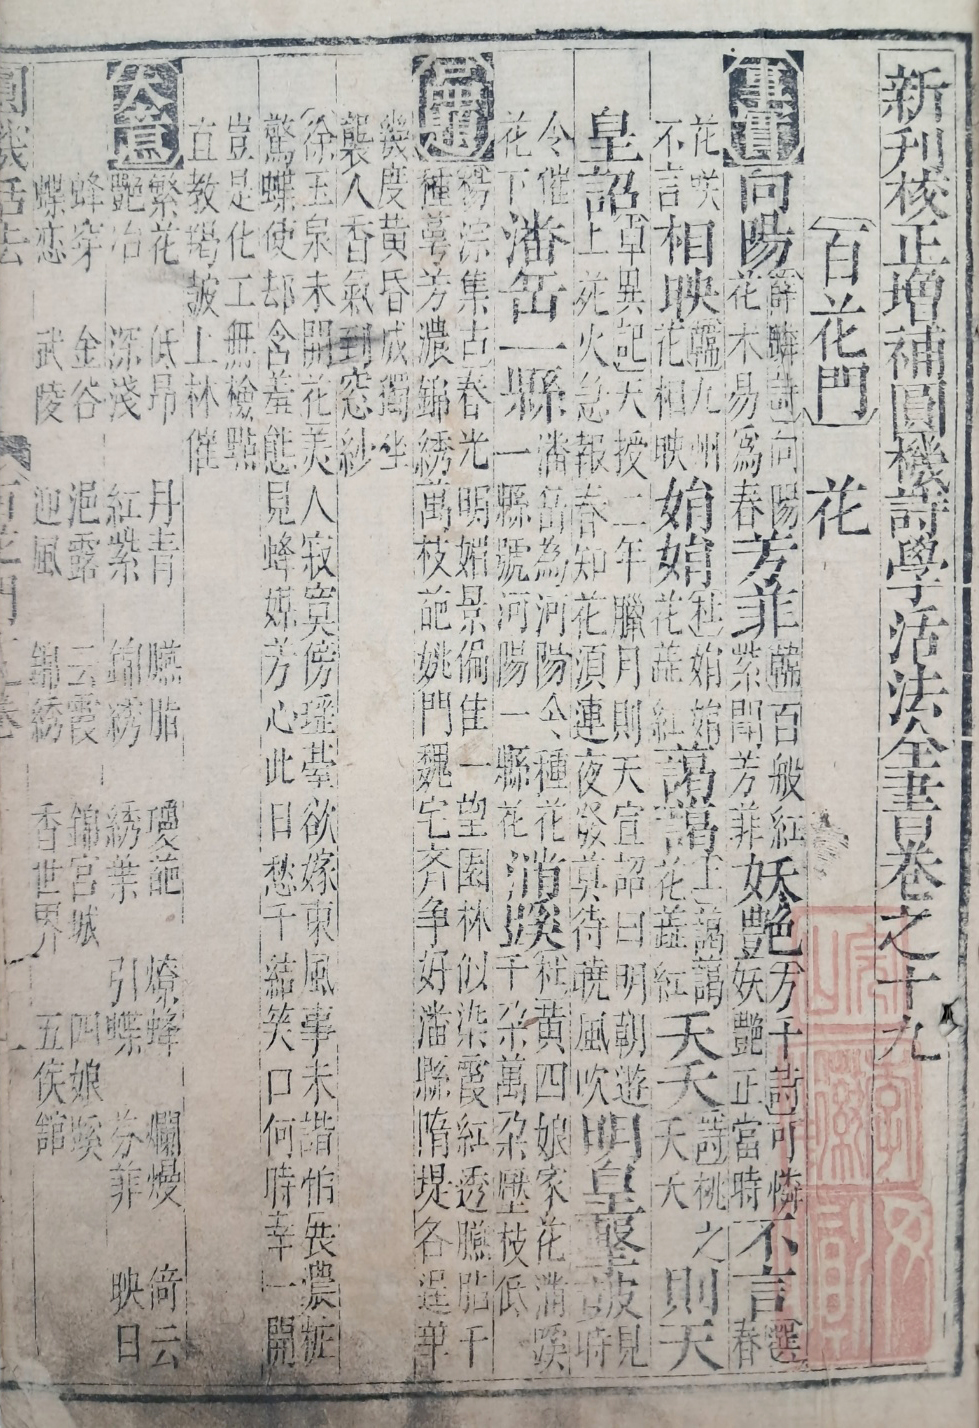 新刋校正增補圓機詩學活法全書卷之十九
百花門 花
事實 向陽 薛瞵詩向陽花木易爲春 芳菲 韓百般紅紫鬪芳菲 妖艷 方干詩可憐妖艷正當時 不言 選春
花咲不言 相映 韓九州花相映 娟娟 杜娟娟花蘂紅 藹藹 上藹藹花蘂紅 夭夭 詩桃之夭夭 則天
皇詔 卓異記天授二年臘月則天宣詔曰明朝遊上苑火急報春知花湏連夜發莫待曉風吹 明皇擊鼓 見時
令催花下 潘岳一縣 潘岳為河陽令種花一縣號河陽一縣花 滿蹊 杜黄四娘家花滿蹊千朶萬朶壓枝低
品題 楊淙集古春光明媚景偏佳一望園林似染霞紅透臙脂千種蕚芳濃錦綉萬枝葩姚門魏宅齐争好潘縣隋堤各逞華
幾度黄昏成獨坐襲人香氣到窓紗
徐玉泉未開花美人寂寞傍瑶臺欲嫁東風事未諧怕長濃粧
驚蝶使却含羞態見蜂媒芳心此日愁千結笑口何時幸一開
豈是化工無檢點直教羯皷上林催
大意 繁花 低昂 丹青 臙脂 瓊葩 燎蜂 爛熳 倚云
艷冶 深淺 紅紫 錦綉 綉葉 引蝶 芬菲 映日
蜂穿 金谷 浥露 云霞 錦宮城 四娘蹊
蝶恋 武陵 迎風 錦綉 香世界 五侯舘
圓機活法 百花門